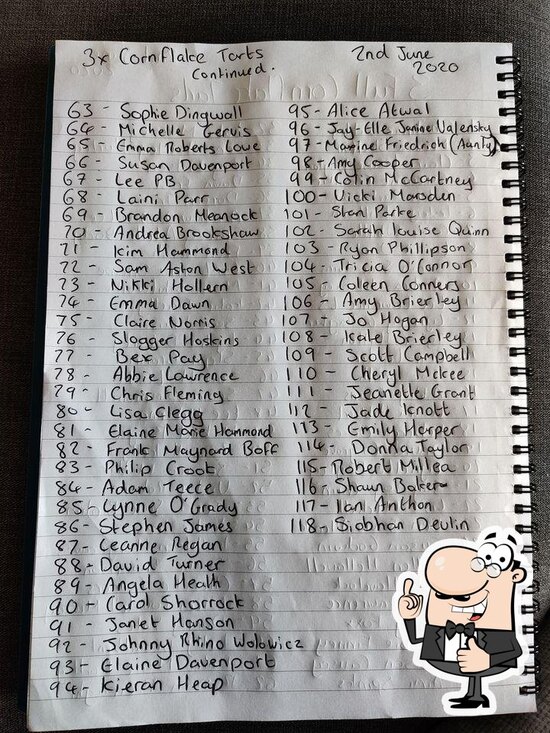 3x Cornflake Tarts
continued.
2nd June
2020
63 - Sophie Dingwall
64 - Michelle Gervis
65 - Emma Roberts Lowe
66 - Susan Davenport
67 - Lee PB
68 - Laini Parr
69 - Brandon Meanock
70 - Andrea Brookshaw
71 - Kim Hammond
72 - Sam Aston West
73 - Nikki Hollern
74 - Emma Dawn
75 - Claire Norris
76 - Slogger Hoskins
77 - Bex Pay
78 - Abbie Lawrence
79 - Chris Fleming
80 - Lisa Clegg
81 - Elaine Marie Hammond
82 - Frank Maynard Boff
83 - Philip Crook
84 - Adam Teece
85 - Lynne O'Grady
86 - Stephen James
87 - Leanne Regan
88 - David Turner
89 - Angela Heath
90 - Carol Shorrock
91 - Janet Hanson
92 - Johnny Rhino Wolowicz
93 - Elaine Davenport
94 - Kieran Heap
95 - Alice Atwal
96 - Jay-Elle Janine Valensky
97 - Maxine Friedrich (Aunty)
98 - Amy Cooper
99 - Colin McCartney
100 - Vicki Marsden
101 - Stan Parke
102 - Sarah Louise Quinn
103 - Ryan Phillipson
104 - Tricia O'Connor
105 - Coleen Conners
106 - Amy Brierley
107 - Jo Hogan
108 - Kate Brierley
109 - Scott Campbell
110 - Cheryl Mckee
111 - Jeanette Grant
112 - Jade Knott
113 - Emily Harper
114 - Donna Taylor
115 - Robert Millea
116 - Shaun Baker
117 - Ian Anthon
118 - Siobhan Devlin